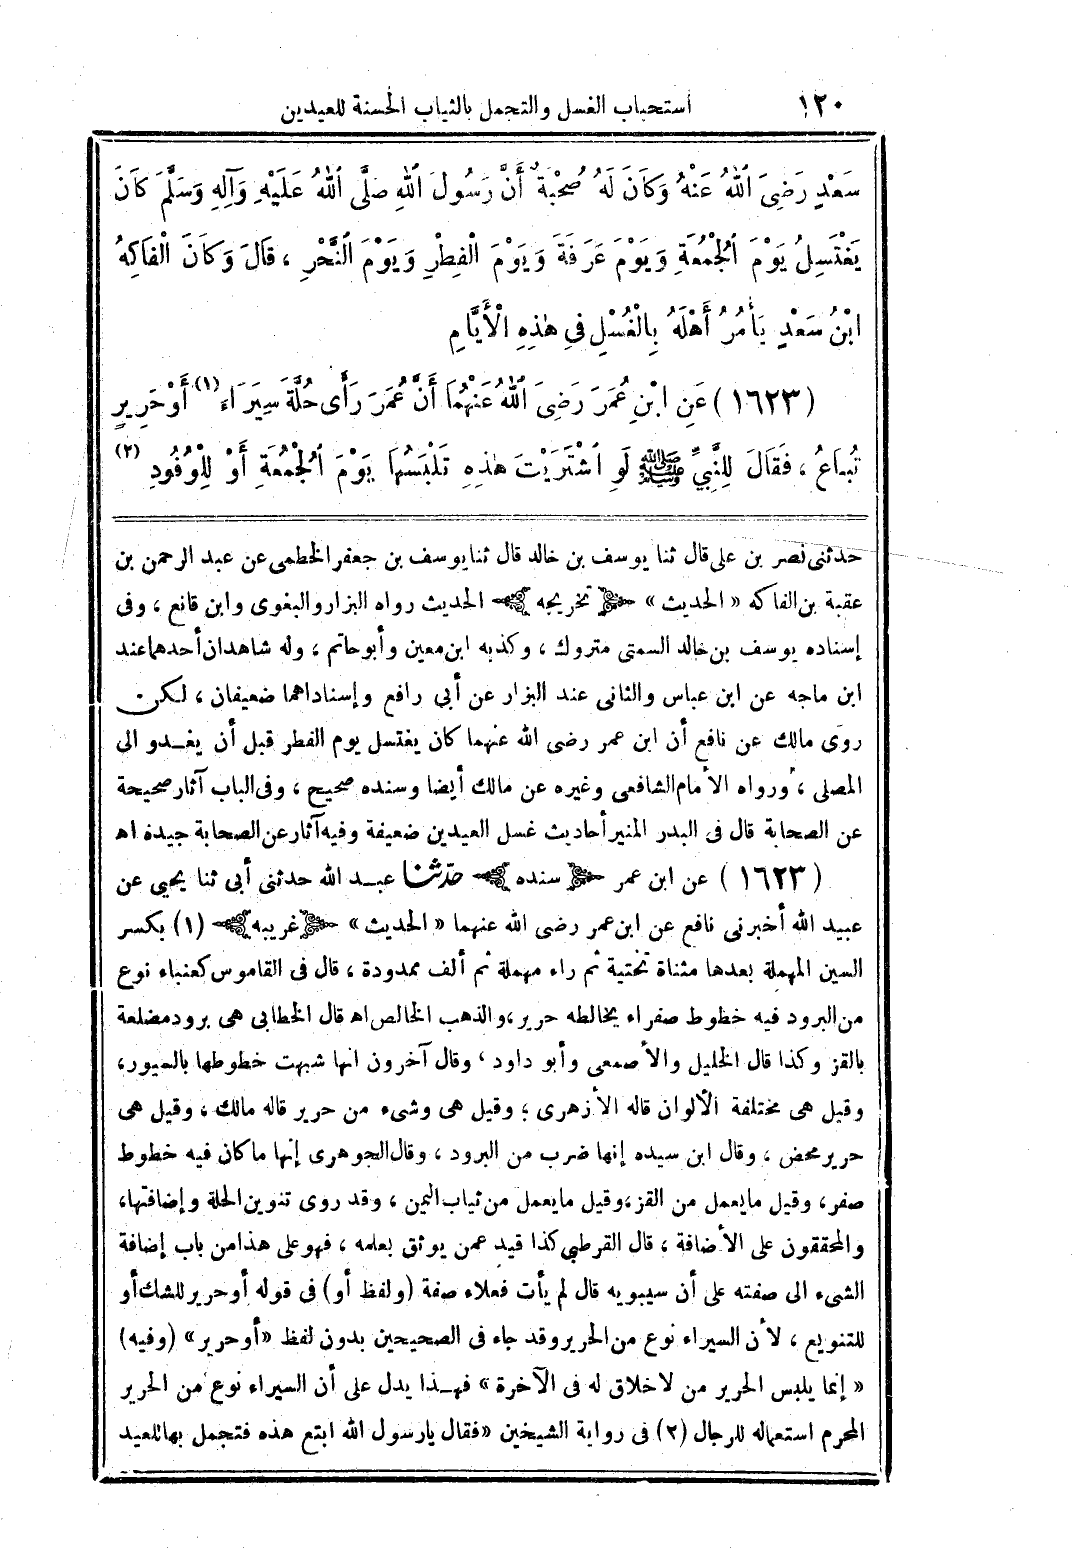 ١٢٠ استحباب الغسل والتجمل بالثياب الحسنة للعيدين
سَعْدٍ رَضِيَ اللهُ عَنْهُ وَكَانَ لَهُ صُحْبَةٌ أَنَّ رَسُولَ اللهِ صَلَّى اللهُ عَلَيْهِ وَآلِهِ وَسَلَّمَ كَانَ
يَغْتَسِلُ يَوْمَ الْجُمُعَةِ وَيَوْمَ عَرَفَةَ وَيَوْمَ الْفِطْرِ وَيَوْمَ النَّحْرِ ، قَالَ وَكَانَ الْفَاكِهُ
ابْنُ سَعْدٍ يَأْمُرُ أَهْلَهُ بِالْغُسْلِ فِي هٰذِهِ الْأَيَّامِ
(١٦٢٣) عَنِ ابْنِ عُمَرَ رَضِيَ اللهُ عَنْهُمَا أَنَّ عُمَرَ رَأَى حُلَّةَ سِيَرَاءَ (١) أَوْ حَرِيرٍ
تُبَاعُ ، فَقَالَ لِلنَّبِيِّ ﷺ لَوِ اشْتَرَيْتَ هٰذِهِ تَلْبَسُهَا يَوْمَ الْجُمُعَةِ أَوْ لِلْوُفُودِ (٢)
حدثنى نصر بن على قال ثنا يوسف بن خالد قال ثنا يوسف بن جعفر الخطمى عن عبد الرحمن بن
عقبة بن الفاكه « الحديث » تخريجه الحديث رواه البزار والبغوى وابن قانع ، وفى
إسناده يوسف بن خالد السمتى متروك ، وكذبه ابن معين وأبو حاتم ، وله شاهدان أحدهما عند
ابن ماجه عن ابن عباس والثانى عند البزار عن أبى رافع وإسناداهما ضعيفان ، لكن
روى مالك عن نافع أن ابن عمر رضى الله عنهما كان يغتسل يوم الفطر قبل أن يغدو الى
المصلى ، ورواه الأمام الشافعى وغيره عن مالك أيضا وسنده صحيح ، وفى الباب آثار صحيحة
عن الصحابة قال فى البدر المنير أحاديث غسل العيدين ضعيفة وفيه آثار عن الصحابة جيدة اه
(١٦٢٣) عن ابن عمر سنده حدثنا عبد الله حدثنى أبى ثنا يحيى عن
عبيد الله أخبرنى نافع عن ابن عمر رضى الله عنهما « الحديث » غريبه (١) بكسر
السين المهملة بعدها مثناة تحتية ثم راء مهملة ثم ألف ممدودة ، قال فى القاموس كعنباء نوع
من البرود فيه خطوط صفراء يخالطه حرير ، والذهب الخالص اه قال الخطابى هى برود مضلعة
بالقز وكذا قال الخليل والأصمعى وأبو داود ، وقال آخرون انها شبهت خطوطها بالسيور ،
وقيل هى مختلفة الألوان قاله الأزهرى ؛ وقيل هى وشىء من حرير قاله مالك ، وقيل هى
حرير محض ، وقال ابن سيده إنها ضرب من البرود ، وقال الجوهرى إنها ما كان فيه خطوط
صفر ، وقيل ما يعمل من القز ، وقيل ما يعمل من ثياب اليمن ، وقد روى تنوين الحلة وإضافتها ،
والمحققون على الأضافة ، قال القرطبى كذا قيد عمن يوثق بعلمه ، فهو على هذا من باب إضافة
الشىء الى صفته على أن سيبويه قال لم يأت فعلاء صفة (ولفظ أو) فى قوله أو حرير للشك أو
للتنويع ، لأن السيراء نوع من الحرير وقد جاء فى الصحيحين بدون لفظ «أو حرير» (وفيه)
« إنما يلبس الحرير من لا خلاق له فى الآخرة » فهذا يدل على أن السيراء نوع من الحرير
المحرم استعماله للرجال (٢) فى رواية الشيخين «فقال يا رسول الله ابتع هذه فتجمل بها للعيد